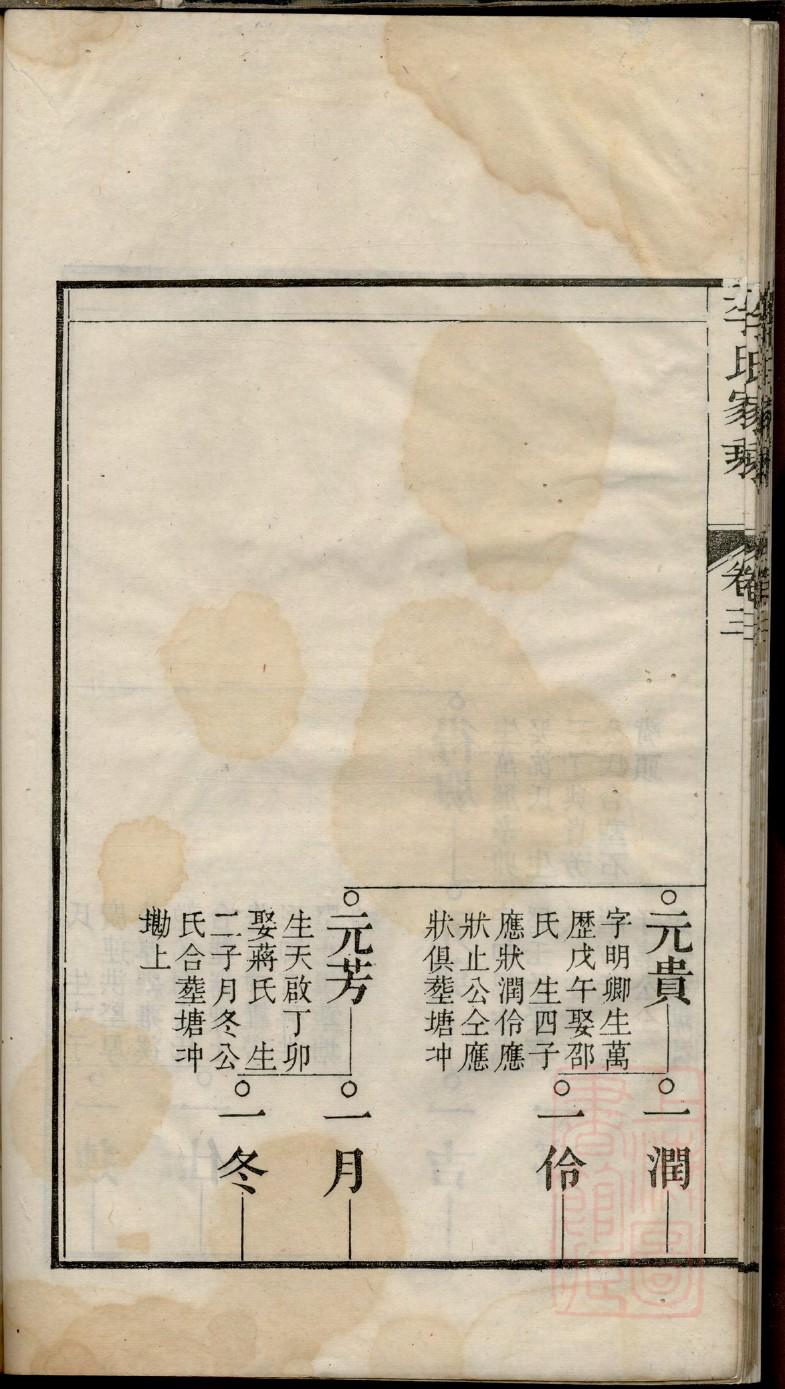 李氏家乘
卷三
元貴
字明卿生萬
歴戊午娶邵
氏 生四子
應狀潤伶應
狀止公仝應
狀俱塟塘冲
一潤
一伶
元芳
生天啟丁卯
娶蔣氏 生
二子月冬公
氏合塟塘冲
墈上
一月
一冬